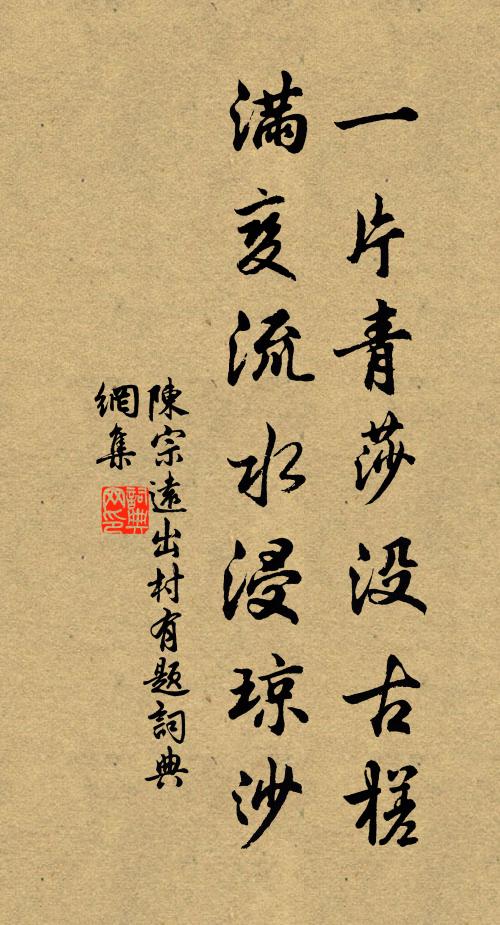 一片青莎没古槎
滿流水浸琼沙
陳宗遠出村有题詞典
網集
詞典
网印